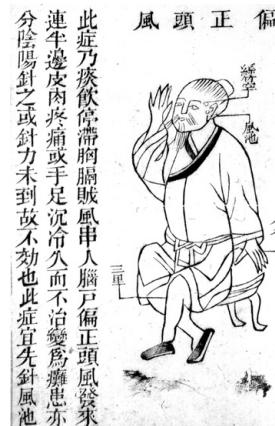 偏正頭風
絲竹空
風池
三里
此症乃痰飲停滯胸膈賊風串入腦戶偏正頭風發來
連半邊皮肉疼痛或手足沉冷久而不治變為癱患亦
分陰陽針之或針力未到故不効也此症宜先針風池